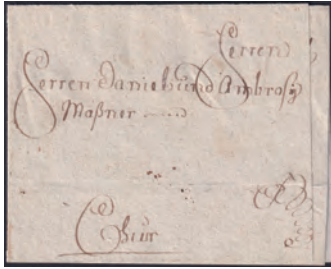 Herren
Herren Daniel und Ambrosÿ
Maßner
Chur